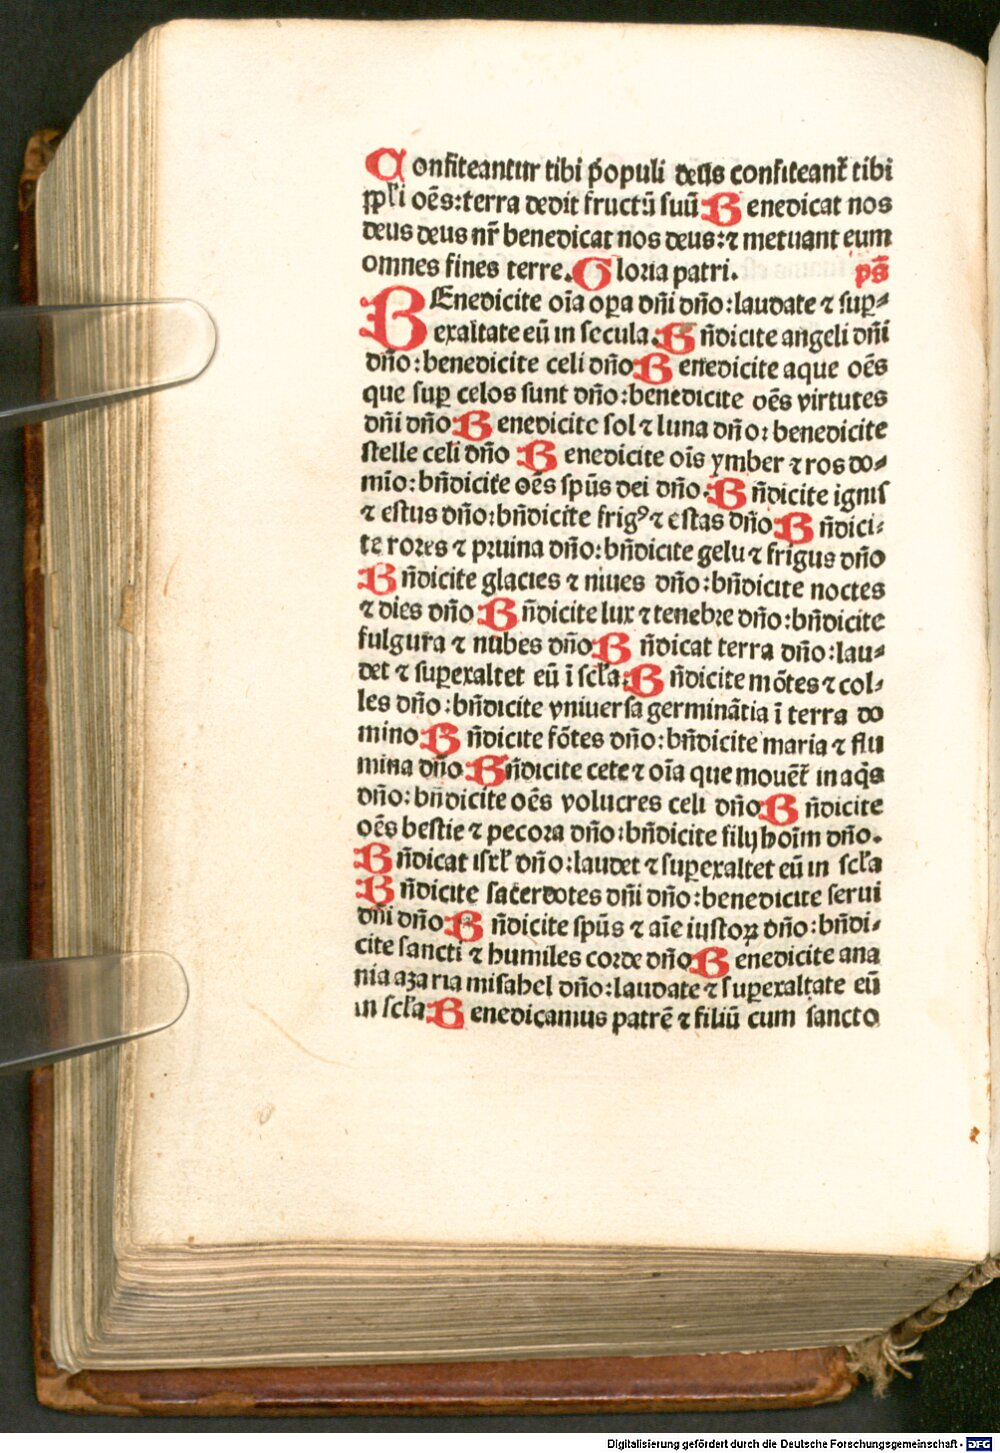 Confiteantur tibi p̄opuli deus confiteant᷑ tibi
ppľi oēs:terra dedit fructū suū Benedicat nos
deus deus nr̄ benedicat nos deus:⁊ metuant eum
omnes fines terre. Gloria patri. ps̄
BEnedicite oīa oꝑa dñi dño:laudate ⁊ suꝑ⸗
exaltate eū in secula. Bñdicite angeli dñi
dño:benedicite celi dño Benedicite aque oēs
que suꝑ celos sunt dño:benedicite oēs virtutes
dñi dño Benedicite sol ⁊ luna dño: benedicite
stelle celi dño Benedicite oīs ymber ⁊ ros do⸗
mīo:bñdicite oēs spūs dei dño. Bñdicite ignis
⁊ estus dño:bñdicite frigꝰ ⁊ estas dño Bñdici⸗
te rores ⁊ pruina dño:bñdicite gelu ⁊ frigus dño
Bñdicite glacies ⁊ niues dño:bñdicite noctes
⁊ dies dño Bñdicite lux ⁊ tenebre dño:bñdicite
fulgura ⁊ nubes dño Bñdicat terra dño:lau⸗
det ⁊ suꝑexaltet eū ī scľa. Bñdicite mōtes ⁊ col⸗
les dño:bñdicite vniuersa germinātia ī terra do
mino Bñdicite fōtes dño:bñdicite maria ⁊ flu
mina dño Bñdicite cete ⁊ oīa que mouēt᷑ in aq̄s
dño:bñdicite oēs volucres celi dño Bñdicite
oēs bestie ⁊ pecora dño:bñdicite filij hoīm dño.
Bñdicat isrľ dño:laudet ⁊ suꝑexaltet eū in scľa
Bñdicite sacerdotes dñi dño:benedicite serui
dñi dño Bñdicite spūs ⁊ aīe iustoꝝ dño:bñdi⸗
cite sancti ⁊ humiles corde dño Benedicite ana
nia azaria misahel dño:laudate ⁊ suꝑexaltate eū
in scľa Benedicamus patrē ⁊ filiū cum sancto
Digitalisierung gefördert durch die Deutsche Forschungsgemeinschaft - DFG